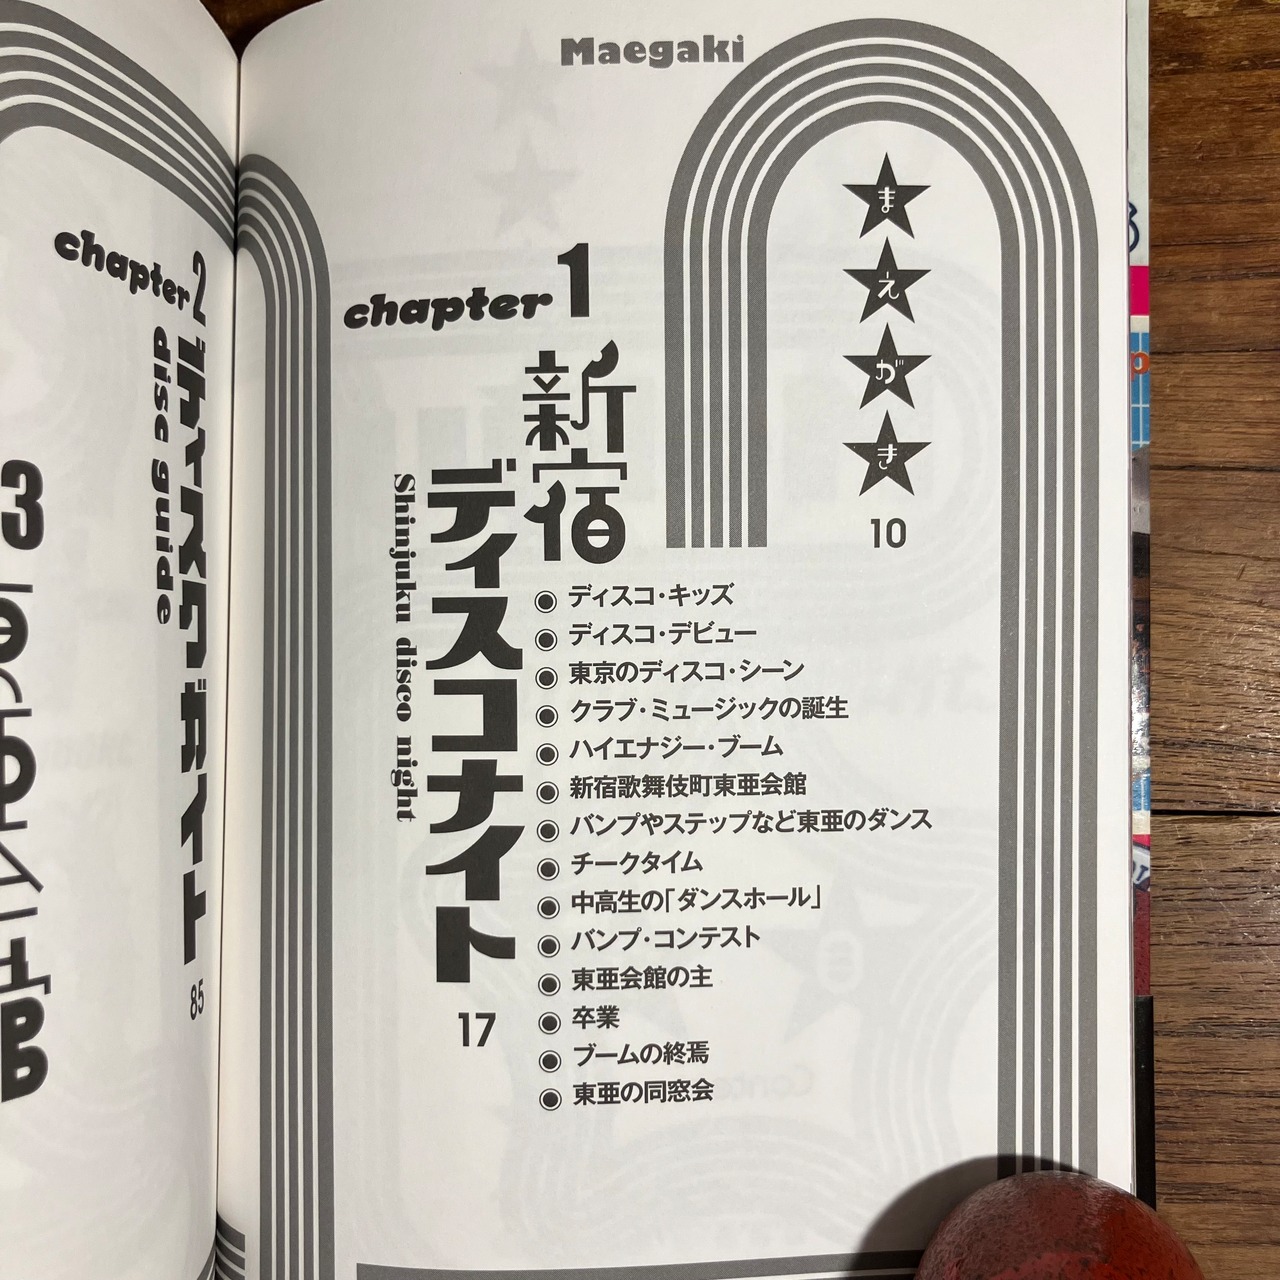 Maegaki
まえがき
10
chapter 1
新宿
ディスコナイト
Shinjuku disco night
17
ディスコ・キッズ
ディスコ・デビュー
東京のディスコ・シーン
クラブ・ミュージックの誕生
ハイエナジー・ブーム
新宿歌舞伎町東亜会館
バンプやステップなど東亜のダンス
チークタイム
中高生の「ダンスホール」
バンプ・コンテスト
東亜会館の主
卒業
ブームの終焉
東亜の同窓会
chapter 2
ディスクガイド
disc guide
85
3